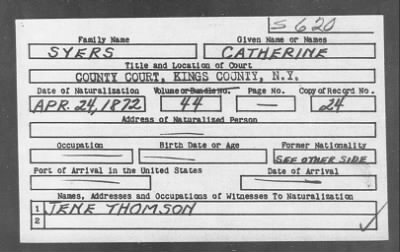 S 620
Family Name Given Name or Names
SYERS CATHERINE
Title and Location of Court
COUNTY COURT, KINGS COUNTY, N.Y.
Date of Naturalization Volume or Bundle No. Page No. Copy of Record No.
APR. 24, 1872 44 — 24
Address of Naturalized Person
—
Occupation Birth Date or Age Former Nationality
— — SEE OTHER SIDE
Port of Arrival in the United States Date of Arrival
— —
Names, Addresses and Occupations of Witnesses To Naturalization
1 JENE THOMSON
2